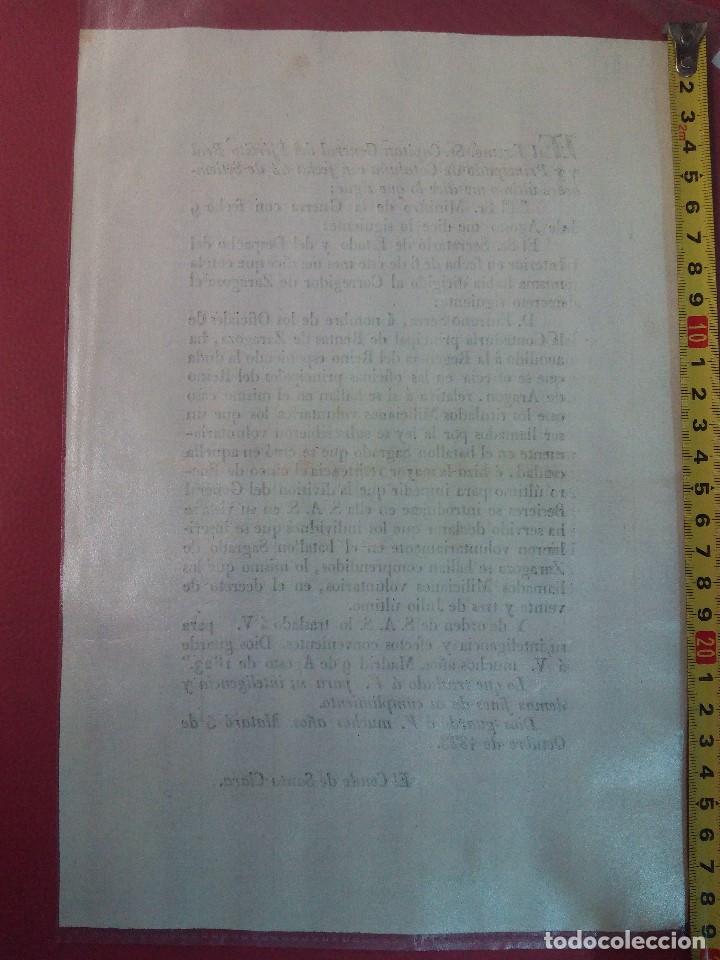 El Excmô. Sr. Capitan General del Ejército Real
y Principado de Cataluña con fecha 28 de Setiem-
bre último me dice lo que sigue:
"El Sr. Ministro de la Guerra con fecha 9
de Agosto me dice lo siguiente:
El Sr. Secretario de Estado y del Despacho del
interior en fecha de 6 de este mes me dice que con la
misma habia dirigido al Corregidor de Zaragoza el
decreto siguiente:
D. Moreno, á nombre de los Oficiales de
la Contaduría principal de Rentas de Zaragoza, ha
acudido á la Regencia del Reino esponiendo la duda
que se ofrecia en las oficinas principales del Reino
de Aragon, relativa á si se hallan en el mismo caso
que los titulados Milicianos voluntarios los que sin
ser llamados por la ley se subscribieron voluntaria-
mente en el batallon Sagrado que se creó en aquella
ciudad, é hizo la mayor resistencia el cinco de Ene-
ro último para impedir que la division del General
Besieres se introdugese en ella S. A. S. en su vista se
ha servido declarar que los individuos que se inscri-
bieron voluntariamente en el batallon Sagrado de
Zaragoza se hallan comprendidos, lo mismo que los
llamados Milicianos voluntarios, en el decreto de
veinte y tres de Julio último.
Y de orden de S. A. S. lo traslado á V. para
su inteligencia y efectos convenientes. Dios guarde
á V. muchos años. Madrid 9 de Agosto de 1823."
Lo que traslado á V. para su inteligencia y
demas fines de su cumplimiento.
Dios guarde á V. muchos años. Mataró 3 de
Octubre de 1823.
El Conde de Santa Clara.
2
3
4
5
6
7
8
9
10
1
2
3
4
5
6
7
8
9
20
1
2
3
4
5
6
2m
todocoleccion.net